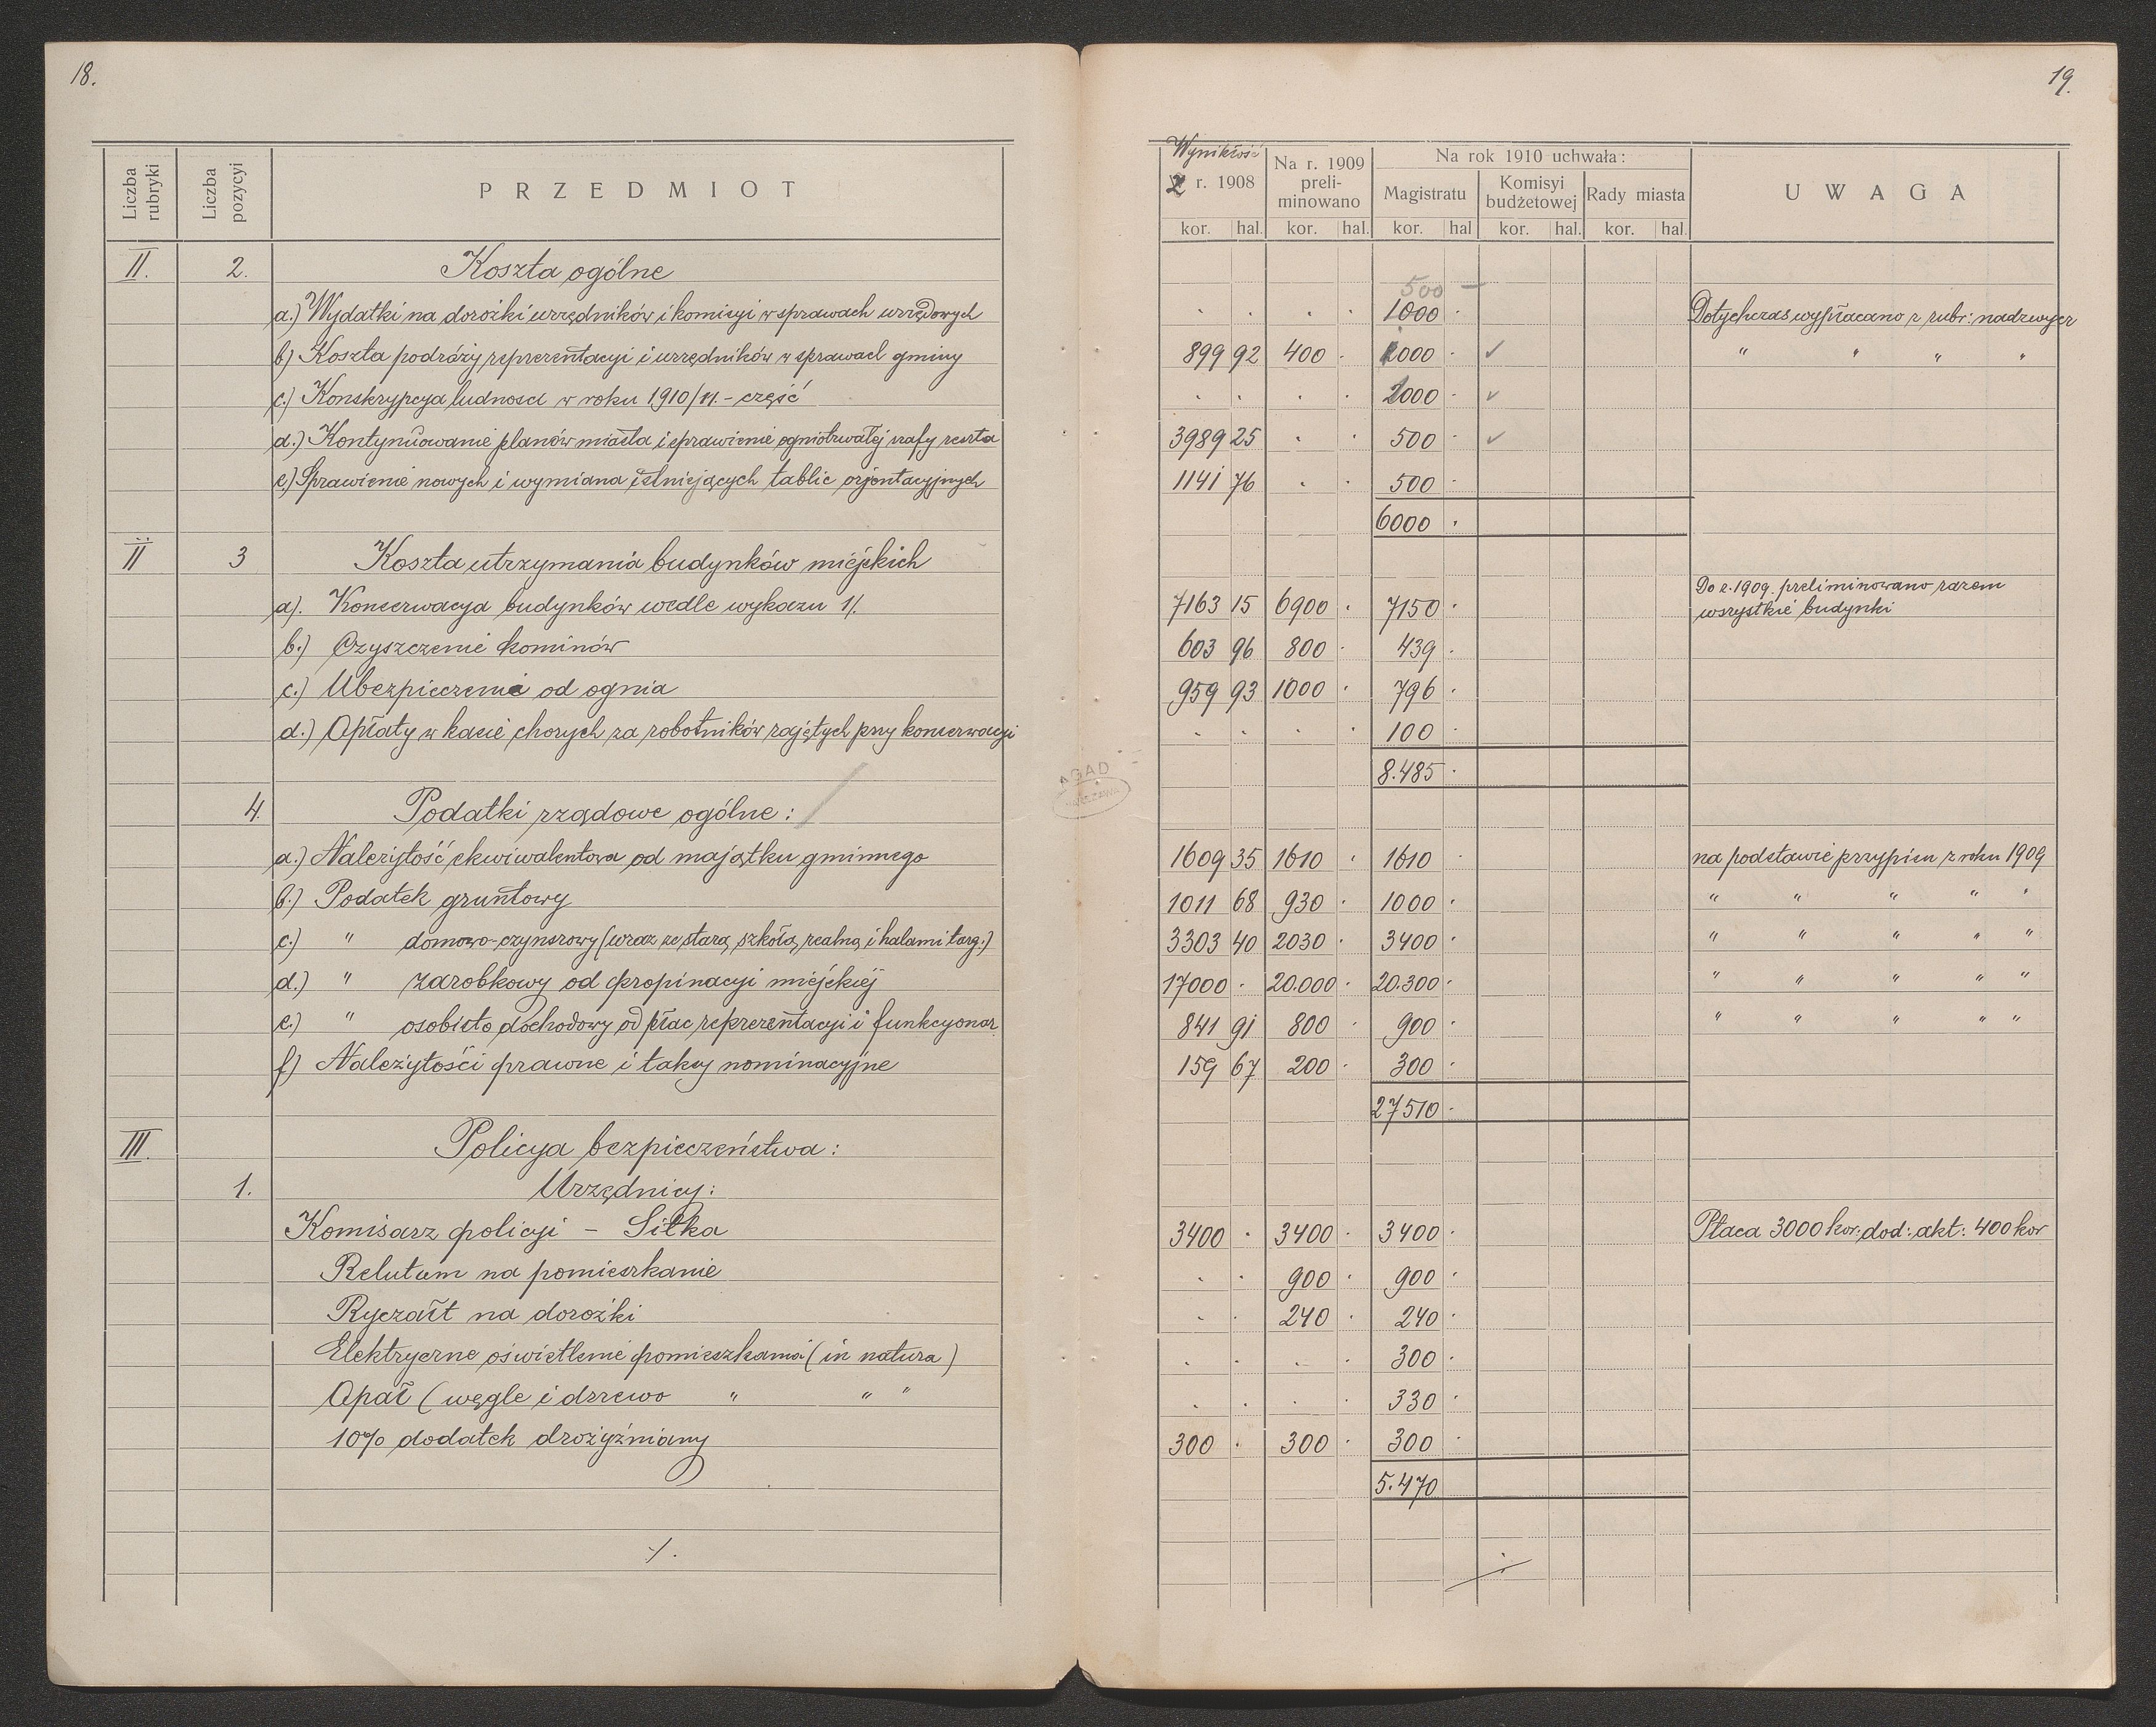 18.
Liczba rubryki
Liczba pozycyi
PRZEDMIOT
II. 2. Koszta ogólne
a.) Wydatki na dorożki urzędników i komisyi w sprawach urzędowych
b) Koszta podróży reprezentacyi i urzędników w sprawach gminy
c.) Konskrypcya ludności w roku 1910/11. - część
d.) Kontynuowanie planów miasta i sprawienie ogniotrwałej szafy reszta
e) Sprawienie nowych i wymiana istniejących tablic orjentacyjnych
II 3 Koszta utrzymania budynków miejskich
a). Konserwacya budynków wedle wykazu 1/.
b.) Czyszczenie kominów
c.) Ubezpieczenie od ognia
d.) Opłaty w kasie chorych za robotników zajętych przy konserwacyi
4. Podatki rządowe ogólne:
a.) Należytość ekwiwalentowa od majątku gminnego
b.) Podatek gruntowy
c.) " domowo-czynszowy (wraz ze starą szkołą realną i halami targ.)
d.) " zarobkowy od propinacyi miejskiej
e.) " osobisto dochodowy od płac reprezentacyi i funkcyonar.
f) Należytości prawne i taksy nominacyjne
III. Policya bezpieczeństwa:
1. Urzędnicy:
Komisarz policyi - Sitka
Relutum na pomieszkanie
Ryczałt na dorożki
Elektryczne oświetlenie pomieszkania (in natura)
Opał (węgle i drzewo " " "
10% dodatek drożyźniany
./.
19.
Wynikłość
Z r. 1908
Na r. 1909 preli-
minowano
Na rok 1910 uchwała:
Magistratu
Komisyi budżetowej
Rady miasta
UWAGA
kor. hal. kor. hal. kor. hal kor. hal. kor. hal.
500 —
. . . . 1000 . Dotychczas wypłacano z rubr: nadzwycz
899 92 400 . 1000 . ✓ " " " "
. . . . 2000 . ✓
3989 25 . . 500 . ✓
1141 76 . . 500 .
6000 .
7163 15 6900 . 7150 . Do r. 1909. preliminowano razem
wszystkie budynki
603 96 800 . 439 .
959 93 1000 . 796 .
. . . . 100 .
8.485 .
AGAD
WARSZAWA
1609 35 1610 . 1610 . na podstawie przypisu z roku 1909
1011 68 930 . 1000 . " " " " "
3303 40 2030 . 3400 . " " " " "
17000 . 20.000 . 20.300 . " " " " "
841 91 800 . 900 . " " " " "
159 67 200 . 300 .
27510 .
3400 . 3400 . 3400 . Płaca 3000 kor: dod: akt: 400 kor
. . 900 . 900 .
. . 240 . 240 .
. . . . 300 .
. . . . 330 .
300 . 300 . 300 .
5.470
./.